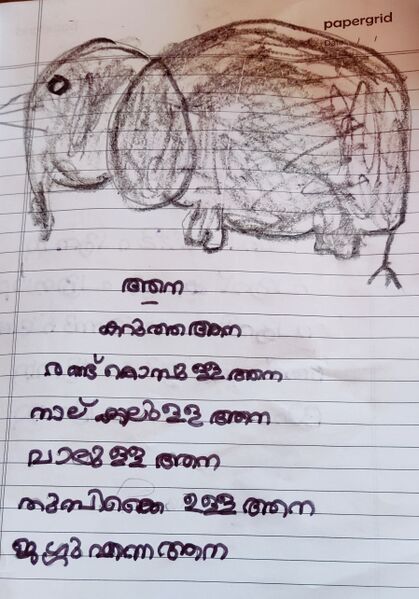 papergrid
Date: / /
ആന
കറുത്ത ആന
രണ്ട് കൊമ്പുള്ള ആന
നാല് കാലുള്ള ആന
വാലുള്ള ആന
തുമ്പിക്കൈ ഉള്ള ആന
എന്ന ആന